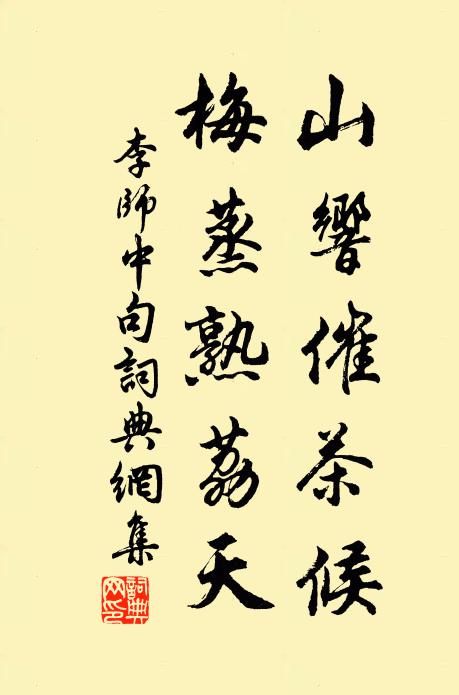 山響催茶候
梅蒸熟荔天
李師中句詞典網集
詞典網印